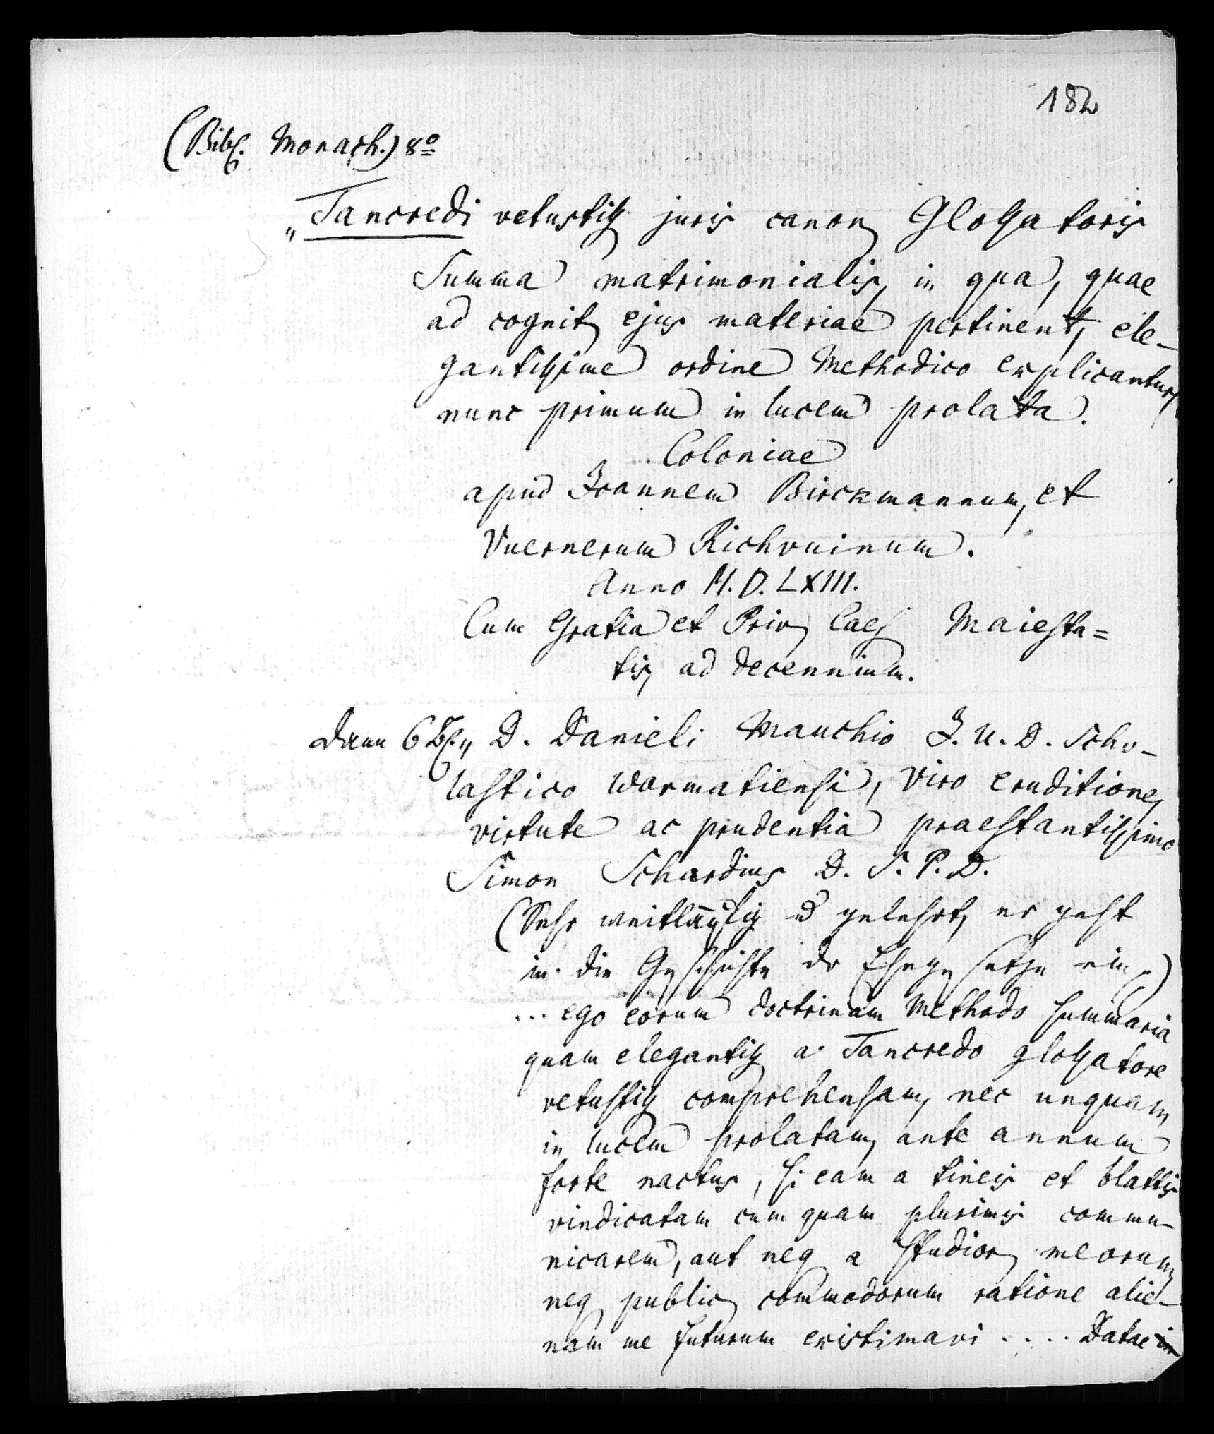 182
(Bibl. Monach.) 8º
„Tancredi vetustiss. juris canon. Glossatoris
Summa matrimonialis, in qua, quae
ad cognit. ejus materiae pertinent, ele-
gantissime ordine Methodico explicantur,
nunc primum in lucem prolata.
Coloniae
apud Joannem Birckmannum, et
Vuernerum Richvuinum.
Anno M.D.LXIII.
Cum Gratia et Priv. Caes. Maiesta=
tis, ad decennium.
Dann 6 Bl. „D. Danieli Mauchio J.U.D. Scho-
lastico Wormatiensi, Viro eruditione,
virtute ac prudentia praestantissimo
Simon Schardius D. S. P. D.
(Sehr weitläufig u gelehrt, er geht
in die Geschichte der Ehegesetze ein)
... ego eorum doctrinam Methodo summaria
quam elegantiss. a Tancredo glossatore
vetustiss. comprehensam, nec unquam
in lucem prolatam, ante annum
forte nactus, si eam a tineis et blattis
vindicatam cum quam plurimis commu-
nicarem, aut neq. a studior. meorum
neq. public. commodorum ratione alie-
nam me futurum existimavi .... Datae in